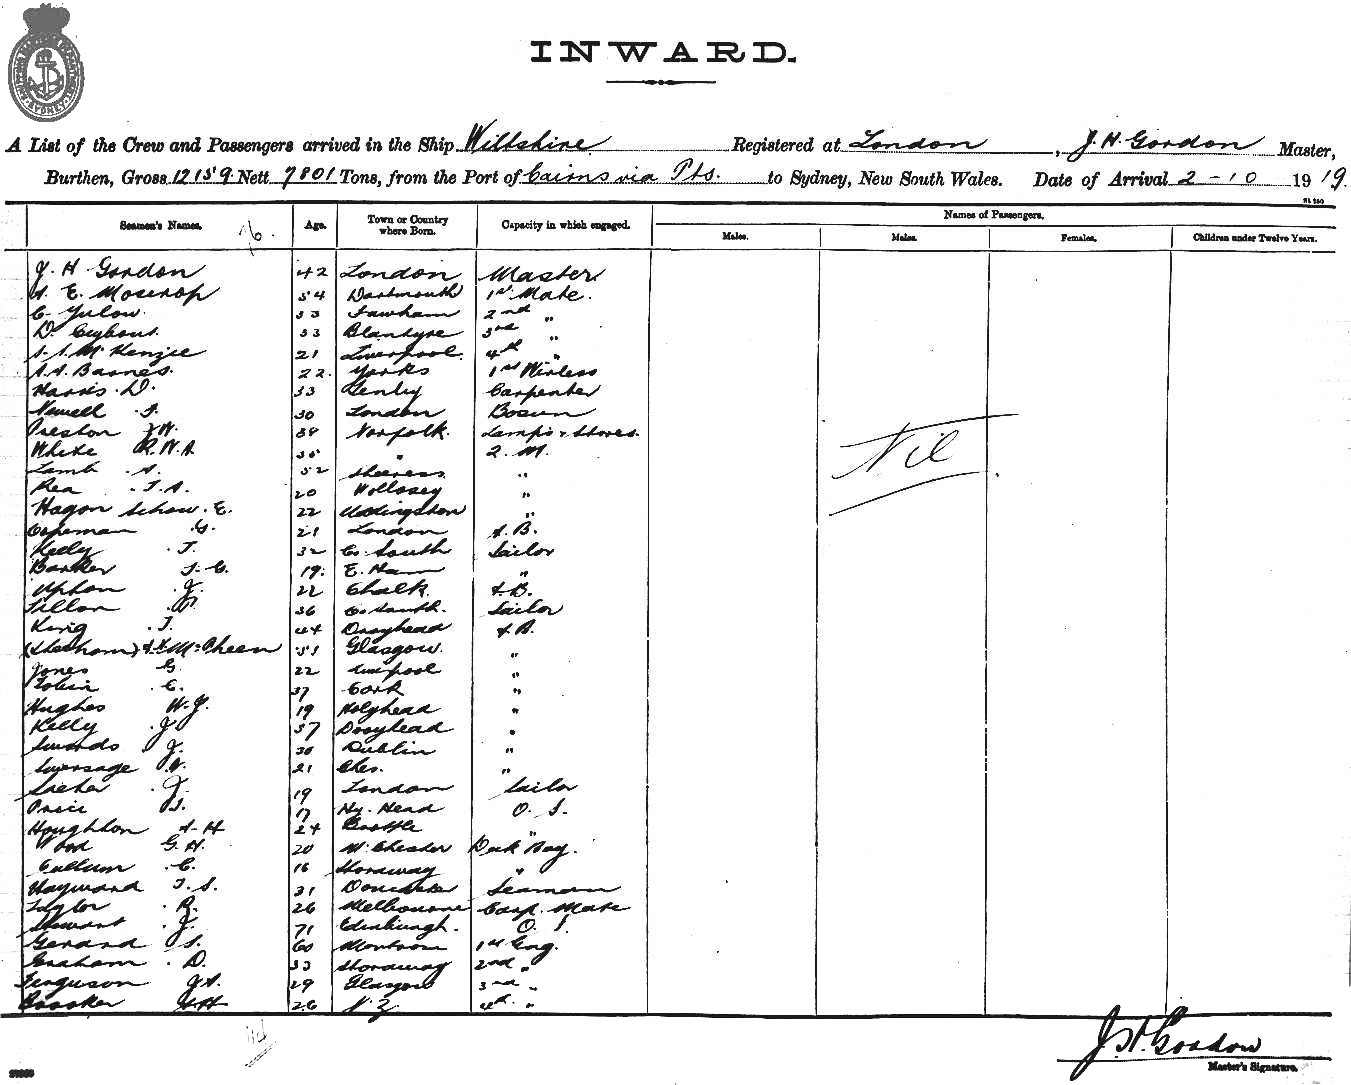 INWARD.
A List of the Crew and Passengers arrived in the Ship Wiltshire Registered at London, J. H. Gordon Master,
Burthen, Gross 12159 Nett 7801 Tons, from the Port of Cairns via Pts. to Sydney, New South Wales. Date of Arrival 2-10 1919.
Names of Passengers.
Seamen's Names. Age. Town or Country where Born. Capacity in which engaged. Males. Males. Females. Children under Twelve Years.
J. H. Gordon 42 London Master
E. Moscrop 54 Dartmouth 1st Mate.
C. 33 2nd "
D. 33 Blantyre 3rd "
McKenzie 21 Liverpool. 4th "
A. A. Barnes. 22. Yorks 1st Wireless
Harris. D. 33 Carpenter
Newell 30 London Bosun
Preston J. W. 38 Norfolk. Lamps & Stores.
White R. W. A. " 2. M.
Lamb . A. 52 Sheerness "
Rea . J. A. 20 "
Hagon Schow. E. 22 Uddingston "
Copeman G. 21 London A. B.
Keely . T. 32 Co. Louth Sailor
Barker 19. E. Ham "
Upton . J. 22 Chalk. A. B.
36 Co. Louth. Sailor
King . T. 44 Drogheda A. B.
51 Glasgow. "
Jones G. 22 Liverpool "
Tobin . C. 37 Cork "
Hughes W. J. 19 Holyhead "
Kelly . J. 37 Drogheda "
Swords J. Dublin "
21 Ches. "
19 London Sailor
Price 17 Hy. Head O. S.
Houghton A. H 24 Bootle "
Wood G. H. 20 M. Chester Deck Boy.
Cullum . C. 16 Stornoway "
Hayward T. S. 31 Doncaster Seaman
Taylor . R. 26 Melbourne Carp. Mate
Stewart . J. 71 Edinburgh. O. S.
Gerard 60 Montrose 1st Eng.
Graham . D. 33 Stornoway 2nd "
Ferguson J. A. 29 Glasgow 3rd "
Brooker 26 N. Z. 4th "
Nil
J. H. Gordon
Master's Signature.